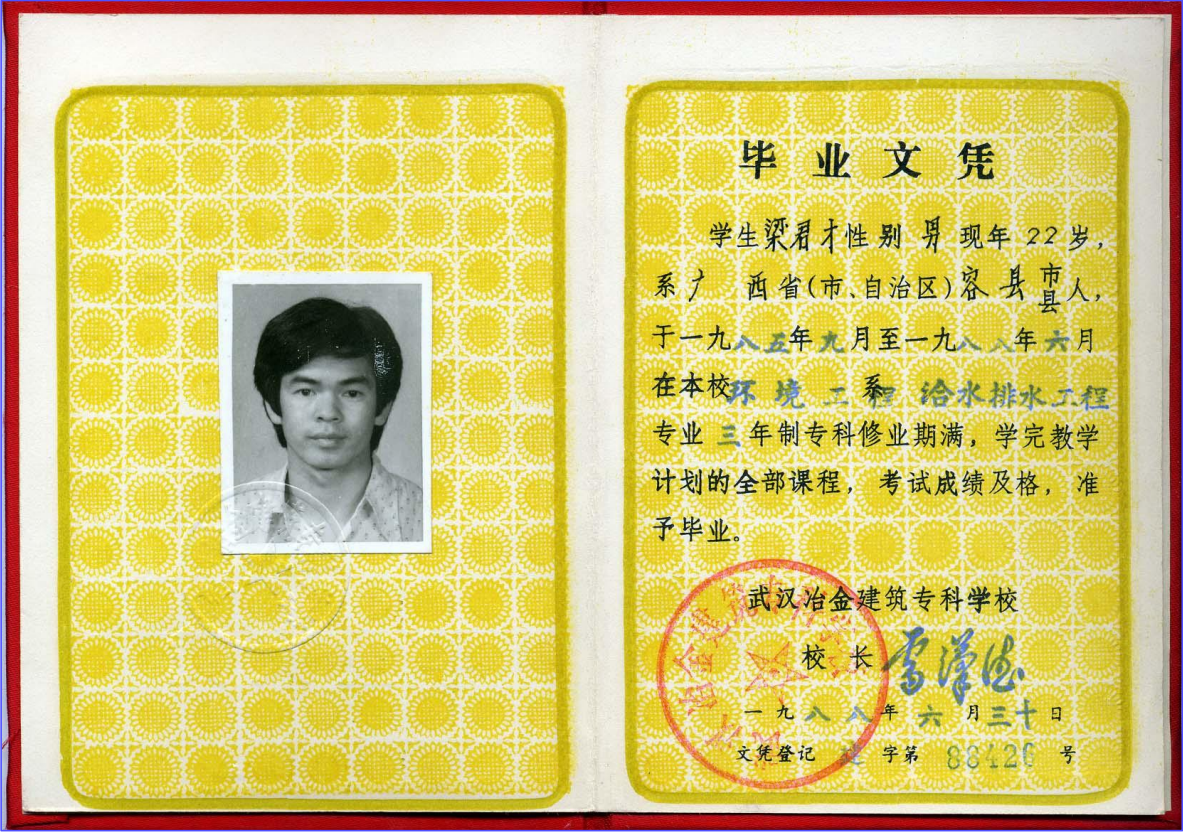 毕业文凭
学生梁君才性别男现年22岁，
系广西省(市、自治区)容县市县人，
于一九八五年九月至一九八八年六月
在本校环境工程系给水排水工程
专业三年制专科修业期满，学完教学
计划的全部课程，考试成绩及格，准
予毕业。
武汉冶金建筑专科学校
校长雷汉德
一九八八年六月三十日
文凭登记建字第88426号
武汉冶金建筑专科学校